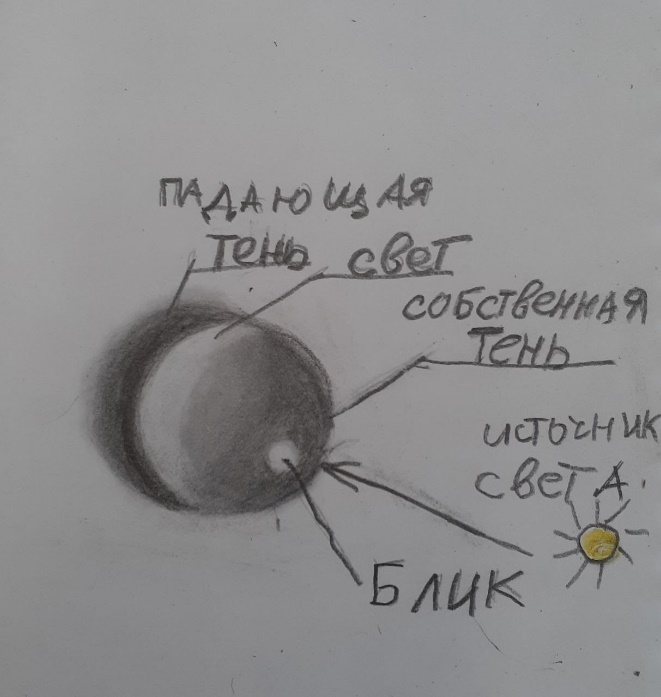 ПАДАЮЩАЯ
тень
свет
СОБСТВЕННАЯ
Тень
источник
света.
Блик